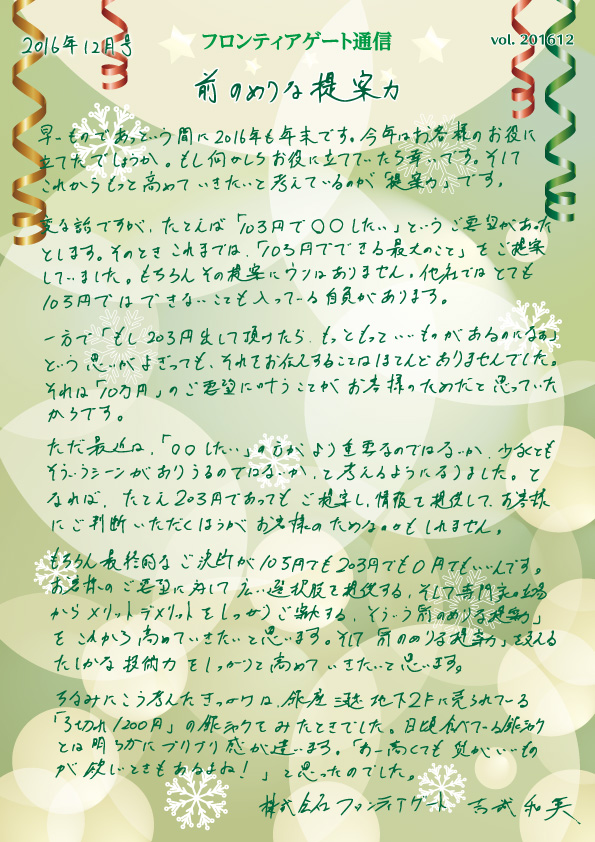 2016年12月号
フロンティアゲート通信
vol. 201612
前のめりな提案力
早いものであっという間に2016年も年末です。今年はお客様のお役に
立てたでしょうか。もし何かしらお役に立てていたら幸いです。そして
これからもっと高めていきたいと考えているのが「提案力」です。
変な話ですが、たとえば「10万円で〇〇したい」というご要望があった
とします。そのときこれまでは、「10万円でできる最大のこと」をご提案
していました。もちろんその提案にウソはありません。他社ではとても
10万円ではできないことも入っている自負があります。
一方で「もし20万円出して頂けたら、もっともっといいものがあるのになぁ」
という思いがよぎっても、それをお伝えすることはほとんどありませんでした。
それは「10万円」のご要望に叶うことがお客様のためだと思っていた
からです。
ただ最近は、「〇〇したい」の方がより重要なのではないか、少なくとも
そういうシーンがありうるのではないか、と考えるようになりました。と
なれば、たとえ20万円であってもご提案し、情報を提供して、お客様
にご判断いただくほうがお客様のためなのかもしれません。
もちろん最終的なご決断が10万円でも20万円でも0円でもいいんです。
お客様のご要望に対して広い選択肢を提供する、そして専門家の立場
からメリットデメリットをしっかりご案内する、そういう「前のめりな提案力」
をこれから高めていきたいと思います。そして「前のめりな提案力」を支える
たしかな技術力をしっかりと高めていきたいと思います。
ちなみにこう考えたきっかけは、銀座三越地下2Fに売られている
「3切れ1200円」の銀シャケをみたときでした。日頃食べている銀シャケ
とは明らかにプリプリ感が違います。「あー高くても質がいいもの
が欲しいときもあるよね！」と思ったのでした。
株式会社フロンティアゲート 吉武和実